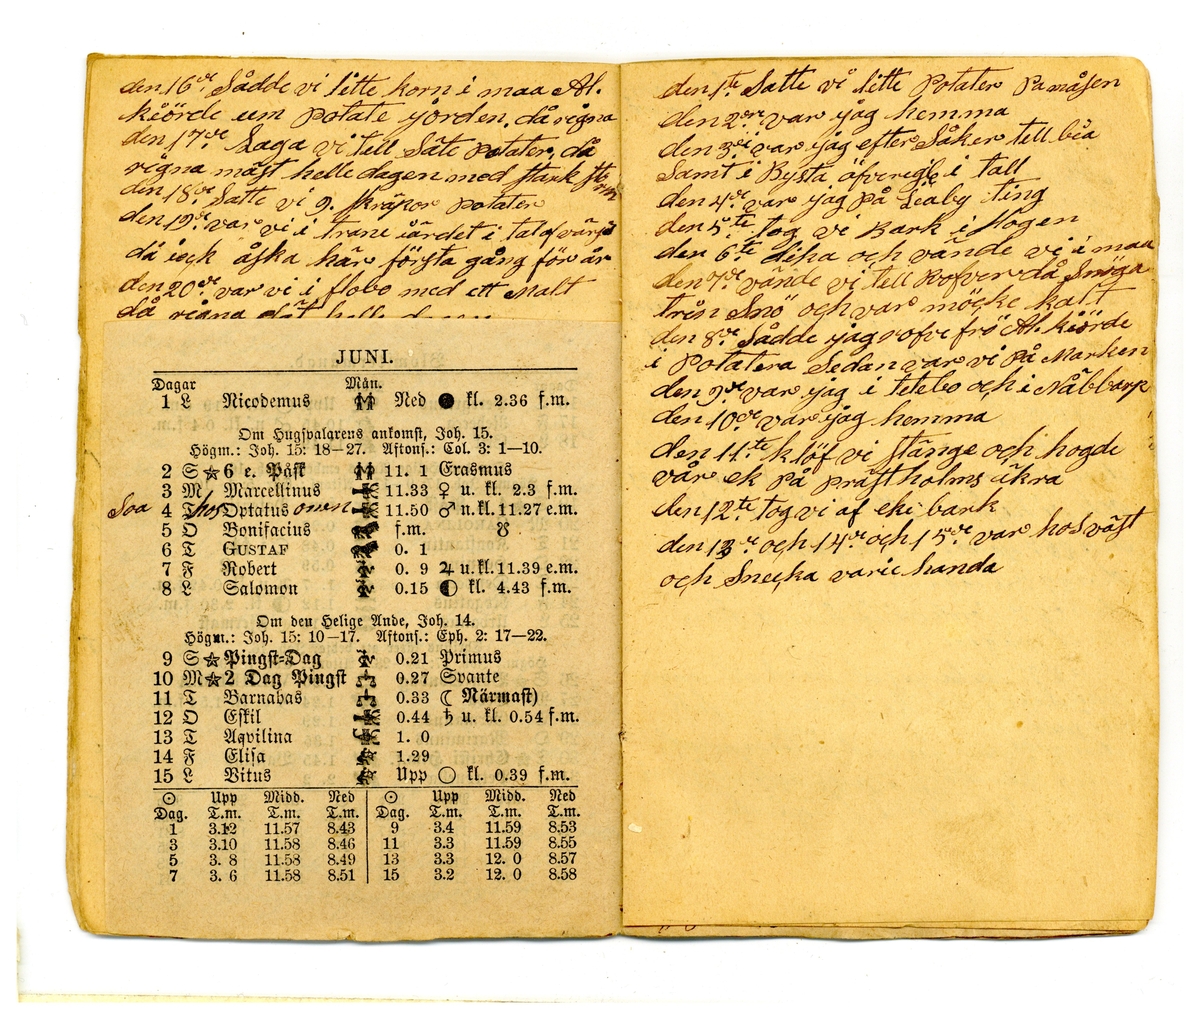 den 16de Sådde vi litte korn i maa Al.
kiörde um Potate jorden. då rägna
den 17de Laga vi tell Säte Potater, då
rägna mäst helle dagen med stark sto
rm
den 18de Satte vi 9. skräpor potater
den 19de var vi i trane iärdet i
då åska här första gång för år
den 20de var vi i flobo med ett Malt
då rägna dät helle dagen
JUNI.
Dagar Mån.
1 L Nicodemus Ned ● kl. 2.36 f.m.
Om Hugsvalarens ankomst, Joh. 15.
Högm.: Joh. 15: 18—27. Aftons.: Col. 3: 1—10.
2 S ☆ 6 e. Påsk 11. 1 Erasmus
3 M Marcellinus 11.33 ♀ u. kl. 2.3 f.m.
Soa hos onen
4 T Optatus 11.50 ♂ n. kl. 11.27 e.m.
5 O Bonifacius f.m. ☋
6 T GUSTAF 0. 1
7 F Robert 0. 9 ♃ u. kl. 11.39 e.m.
8 L Salomon 0.15 ◐ kl. 4.43 f.m.
Om den Helige Ande, Joh. 14.
Högm.: Joh. 15: 10—17. Aftons.: Eph. 2: 17—22.
9 S ☆ Pingst-Dag 0.21 Primus
10 M ☆ 2 Dag Pingst 0.27 Svante
11 T Barnabas 0.33 ☾ Närmast)
12 O Eskil 0.44 ♄ u. kl. 0.54 f.m.
13 T Aqvilina 1. 0
14 F Elisa 1.29
15 L Vitus Upp ○ kl. 0.39 f.m.
☉ Upp Midd. Ned ☉ Upp Midd. Ned
Dag. T.m. T.m. T.m. Dag. T.m. T.m. T.m.
1 3.12 11.57 8.43 9 3.4 11.59 8.53
3 3.10 11.58 8.46 11 3.3 11.59 8.55
5 3. 8 11.58 8.49 13 3.3 12. 0 8.57
7 3. 6 11.58 8.51 15 3.2 12. 0 8.58
den 1te Satte vi litte Potater Pa måsen
den 2ere var jag hemma
den 3ei var jag efter Såker tell bia
Samt i Bysta öfverigt i tall
den 4de var jag på Leaby ting
den 5te tog vi Bark i Hogen
den 6te dika och vände vi i maa
den 7de vände vi tell Rofver då Snöga
trån Snö och var möcke kalt
den 8de Sådde jag rofve frö Al. kiörde
i Potatera Sedan var vi På Marken
den 9de var jag i tetebo och i Nåbbarp
den 10de var jag hemma
den 11te klöf vi stänge och hogde
vår ek på prästholms ükra
den 12te tog vi af eke bark
den 13de och 14de och 15de var hos väft
och Snecka varie handa